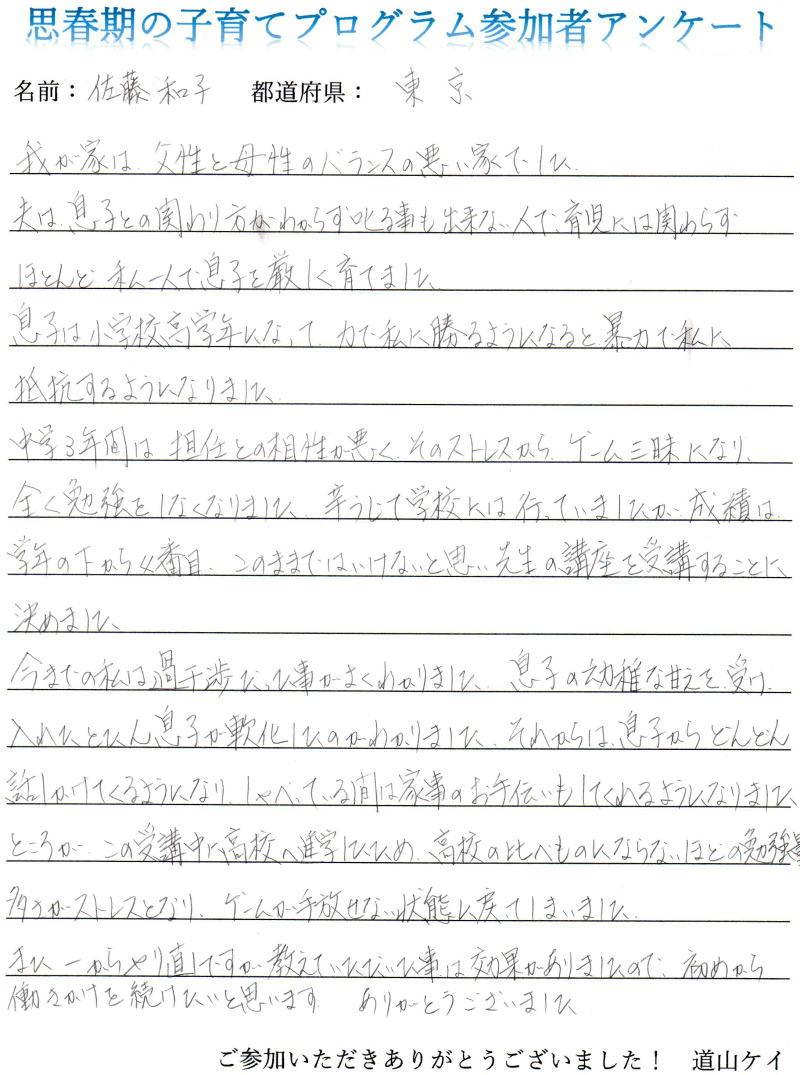 思春期の子育てプログラム参加者アンケート
名前： 佐藤 和子 都道府県： 東 京
我が家は、父性と母性のバランスの悪い家でした。
夫は、息子との関わり方がわからず叱る事も出来ない人で、育児には関わらず
ほとんど 私一人で息子を厳しく育てました。
息子は小学校高学年になって、力で私に勝るようになると暴力で私に
抵抗するようになりました。
中学3年間は 担任との相性が悪く、そのストレスから、ゲーム三昧になり、
全く勉強をしなくなりました。辛うじて学校には行っていましたが 成績は、
学年の下から 番目、このままではいけないと思い 先生の講座を受講することに
決めました。
今までの私は過干渉だった事がよくわかりました。息子の幼稚な甘えを受け
入れたとたん息子が軟化したのがわかりました。それからは、息子からどんどん
話しかけてくるようになり、しゃべっている間は家事のお手伝いもしてくれるようになりました。
ところが この受講中に高校へ進学したため、高校の比べものにならないほどの勉強量
多さがストレスとなり、ゲームが手放せない状態に戻ってしまいました。
また 一からやり直しですが 教えていただいた事は効果がありましたので、初めから
働きかけを続けたいと思います ありがとうございました
ご参加いただきありがとうございました！ 道山ケイ